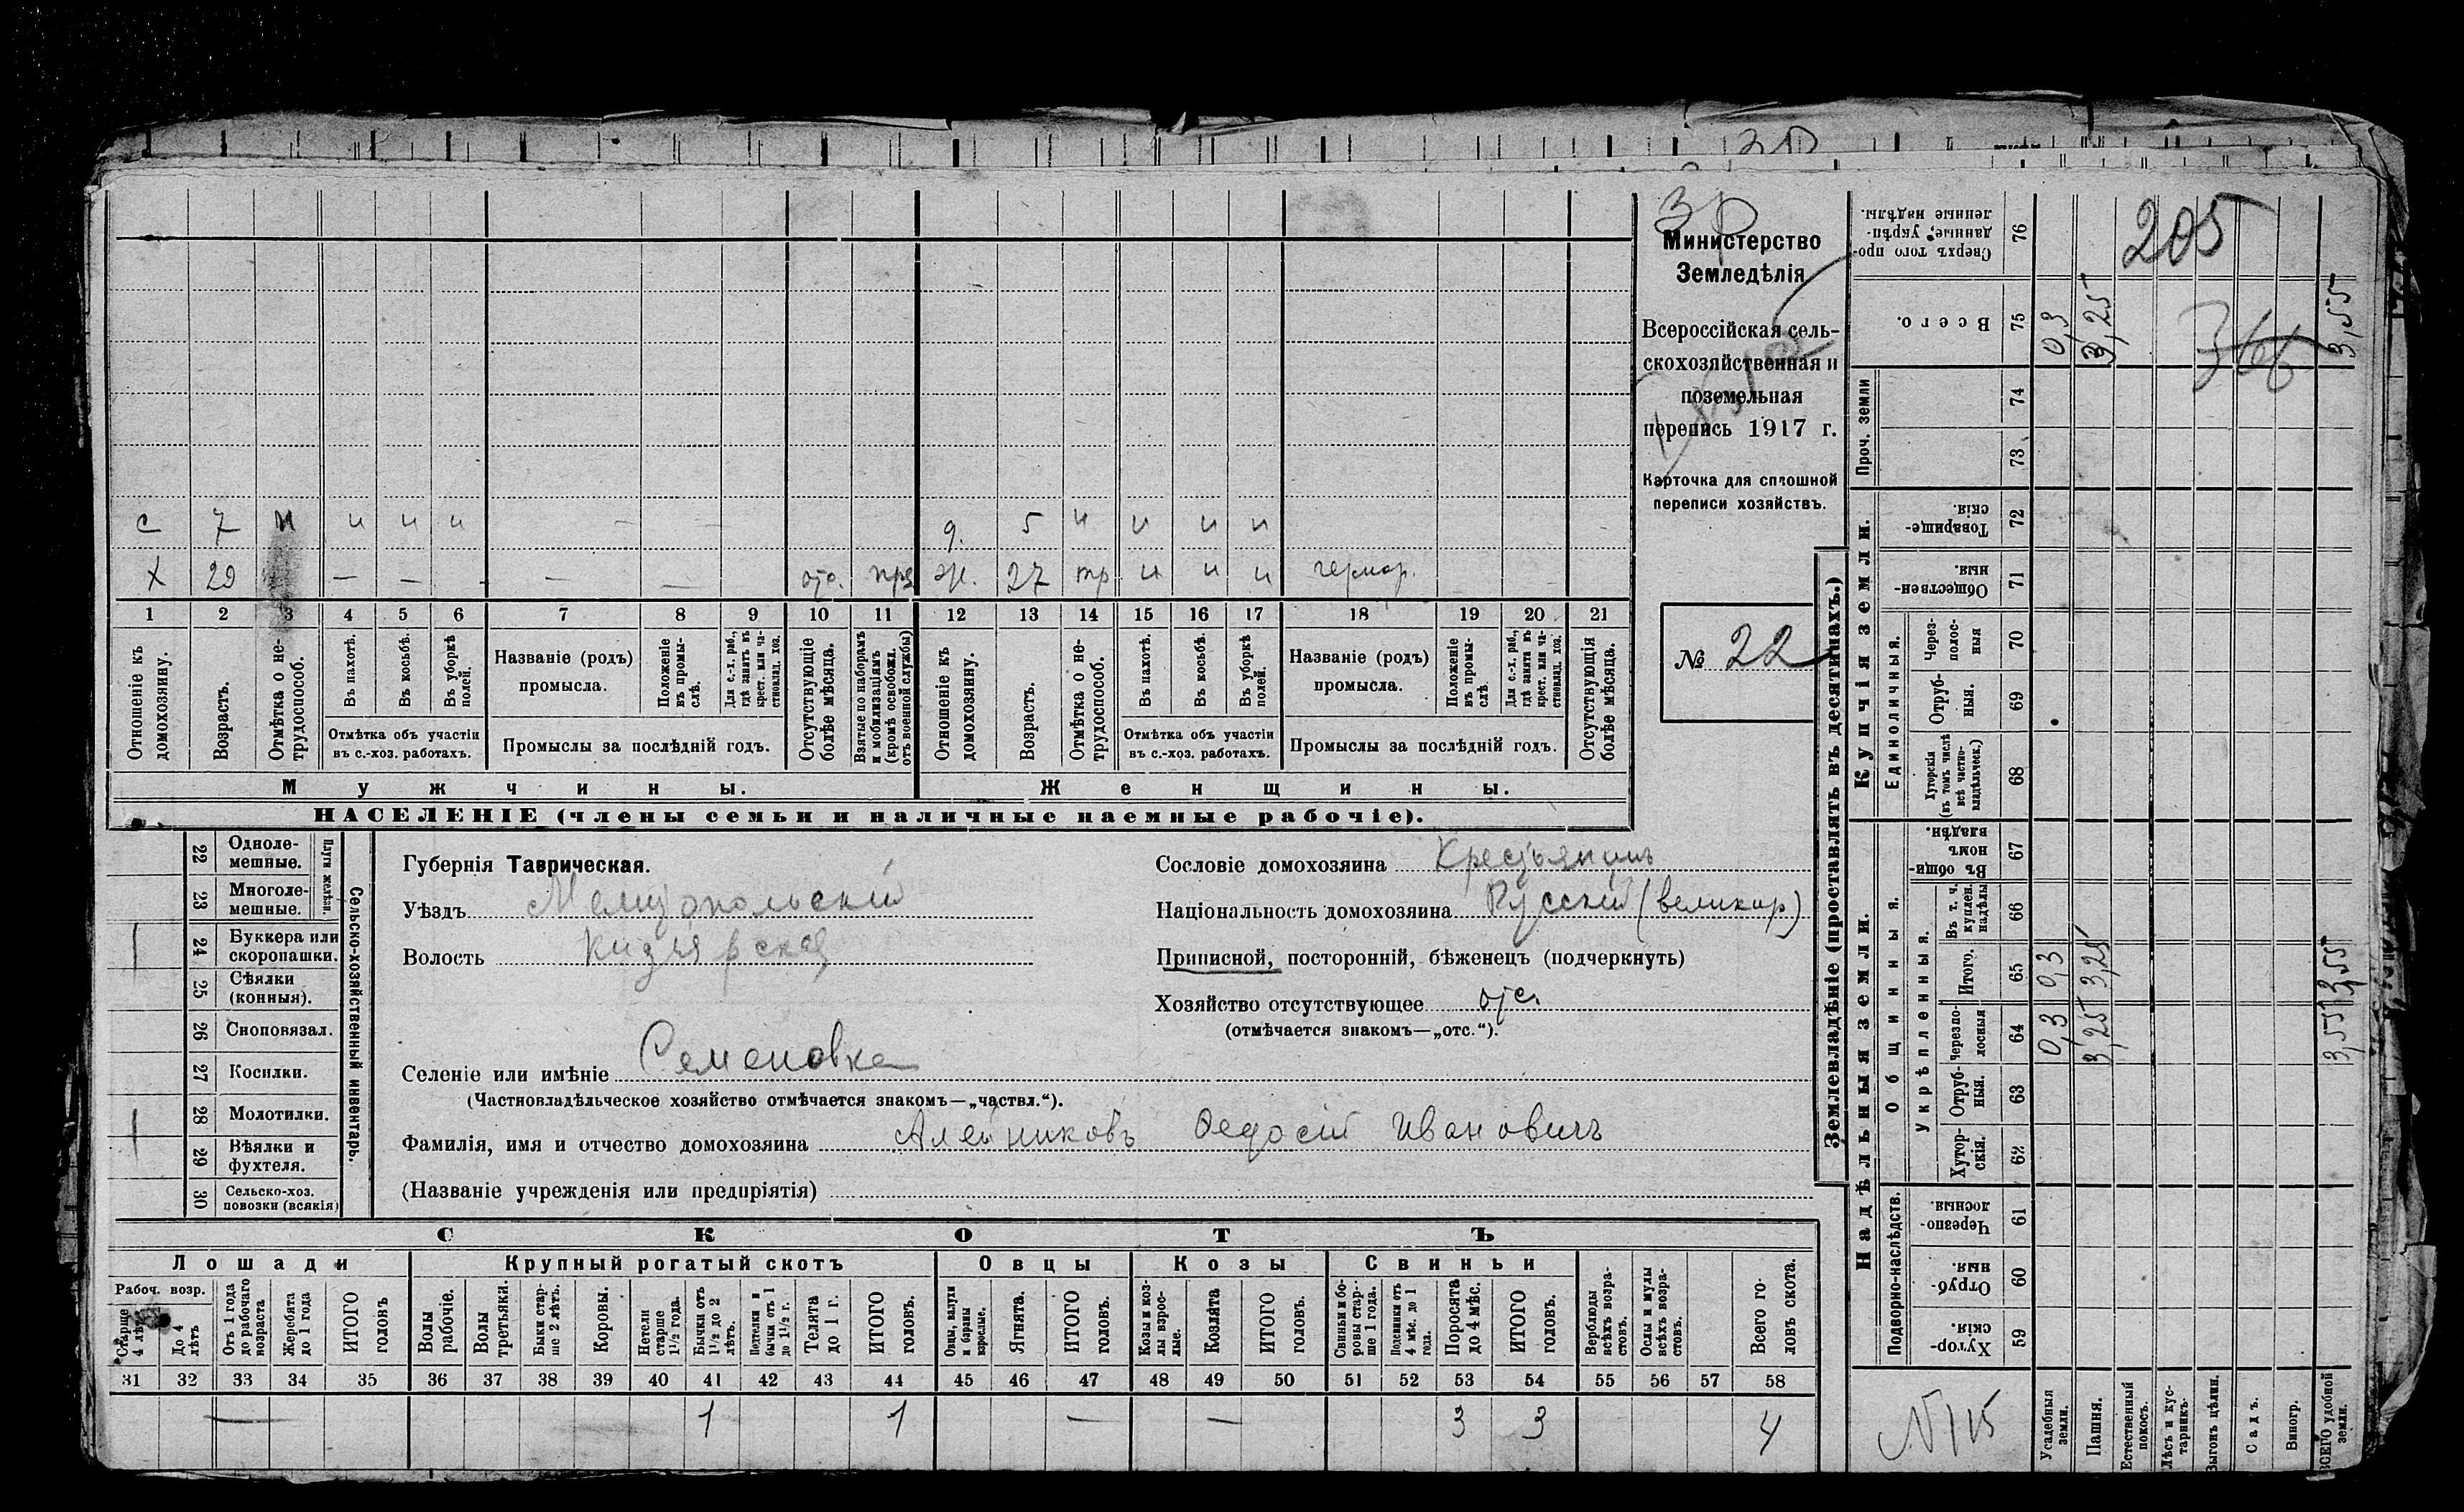 205
3,55
0,3
3,25
366
Министерство
Земледѣлія
Всероссійская сель-
скохозяйственная и
поземельная
перепись 1917 г.
Карточка для сплошной
переписи хозяйствъ.
№ 22
с 7 н н н н — — д. 5 н н н н
Х 29 — — - — — отс. жр. 27 тр н н н
1 2 3 4 5 6 7 8 9 10 11 12 13 14 15 16 17 18 19 20 21
Отношеніе къ домохозяину.
Возрастъ.
Отмѣтка о не-трудоспособ.
Въ пахотѣ.
Въ косьбѣ.
Въ уборкѣ полей.
Отмѣтка объ участіи
въ с.-хоз. работахъ.
Названіе (родъ)
промысла.
Положеніе въ промы-слѣ.
Для с.-х. раб., гдѣ занятъ въ крест. или ча-стновлад. хоз.
Промыслы за послѣдній годъ.
Отсутствующіе болѣе мѣсяца.
Взятые по наборамъ и мобилизаціямъ (кромѣ освобожд. отъ военной службы)
Отношеніе къ домохозяину.
Возрастъ.
Отмѣтка о не-трудоспособ.
Въ пахотѣ.
Въ косьбѣ.
Въ уборкѣ полей.
Отмѣтка объ участіи
въ с.-хоз. работахъ.
Названіе (родъ)
промысла.
Положеніе въ промы-слѣ
Для с.-х. раб., гдѣ занята въ крест. или ча-стновлад. хоз.
Промыслы за послѣдній годъ.
Отсутствующія болѣе мѣсяца.
Мужчины. Женщины.
НАСЕЛЕНІЕ (члены семьи и наличные наемные рабочіе).
22 Одноле-мешные.
23 Многоле-мешные.
Плуги желѣзн.
24 Буккера или скоропашки.
25 Сѣялки (конныя).
26 Сноповязал.
27 Косилки.
28 Молотилки.
29 Вѣялки и фухтеля.
30 Сельско-хоз. повозки (всякія)
Сельско-хозяйственный инвентарь.
Губернія Таврическая.
Уѣздъ Мелитопольскій
Волость Кизіярская
Селеніе или имѣніе Семеновка
(Частновладѣльческое хозяйство отмѣчается знакомъ—„частвл.“).
Фамилія, имя и отчество домохозяина Алейниковъ Федосій Ивановичъ
(Названіе учрежденія или предпріятія)
Сословіе домохозяина Крестьянинъ
Національность домохозяина Русскій (великор)
Приписной, посторонній, бѣженецъ (подчеркнуть)
Хозяйство отсутствующее отс.
(отмѣчается знакомъ—„отс.“).
СКОТЪ
Лошади Крупный рогатый скотъ Овцы Козы Свиньи
Рабоч. возр.
Старше 4 лѣтъ
До 4 лѣтъ
Отъ 1 года до рабочаго возраста
Жеребята до 1 года
ИТОГО головъ
Волы рабочіе.
Волы третьяки.
Быки стар-ше 2 лѣтъ.
Коровы.
Нетели старше 1½ года.
Бычки отъ 1½ до 2 лѣтъ.
Подтелки и бычки отъ 1 до 1½ г.
Телята до 1 г.
ИТОГО головъ.
Овцы, валухи и бараны взрослые.
Ягнята.
ИТОГО головъ.
Козы и коз-лы взрос-лые.
Козлята
ИТОГО головъ.
Свиньи и бо-ровы стар-ше 1 года.
Подсвинки отъ 4 мѣс. до 1 года.
Поросята до 4 мѣс.
ИТОГО головъ.
Верблюды всѣхъ возра-стовъ.
Ослы и мулы всѣхъ возра-стовъ.
Всего го-ловъ скота.
31 32 33 34 35 36 37 38 39 40 41 42 43 44 45 46 47 48 49 50 51 52 53 54 55 56 57 58
— 1 1 — — 3 3 4
Землевладѣніе (проставлять въ десятинахъ.)
Надѣльныя земли. Купчія земли. Проч. земли
Подворно-наслѣдств.
Общинныя.
Укрѣпленныя.
Единоличныя.
Хутор-скія. 59
Отруб-ныя. 60
Черезпо-лосныя 61
Хутор-скія. 62
Отруб-ныя. 63
Черезпо-лосныя 64 0,3 3,25 3,55
Итого. 65 0,3 3,25 3,55
Въ т. ч. куплен. надѣлы 66
Въ общи-номъ владѣн. 67
Хуторскія (въ томъ числѣ всѣ частно-владѣльческ.) 68
Отруб-ныя. 69
Через-полос-ныя 70
Обществен-ныя 71
Товарище-скія. 72
73
74
Всего. 75
Сверхъ того про-данные, укрѣп-ленные надѣлы. 76
N 115
Усадебныя земли.
Пашня.
Естественный покосъ.
Лѣсъ и кус-тарникъ.
Выгонъ цѣлин.
Садъ.
Виногр.
ВСЕГО удобной земли.